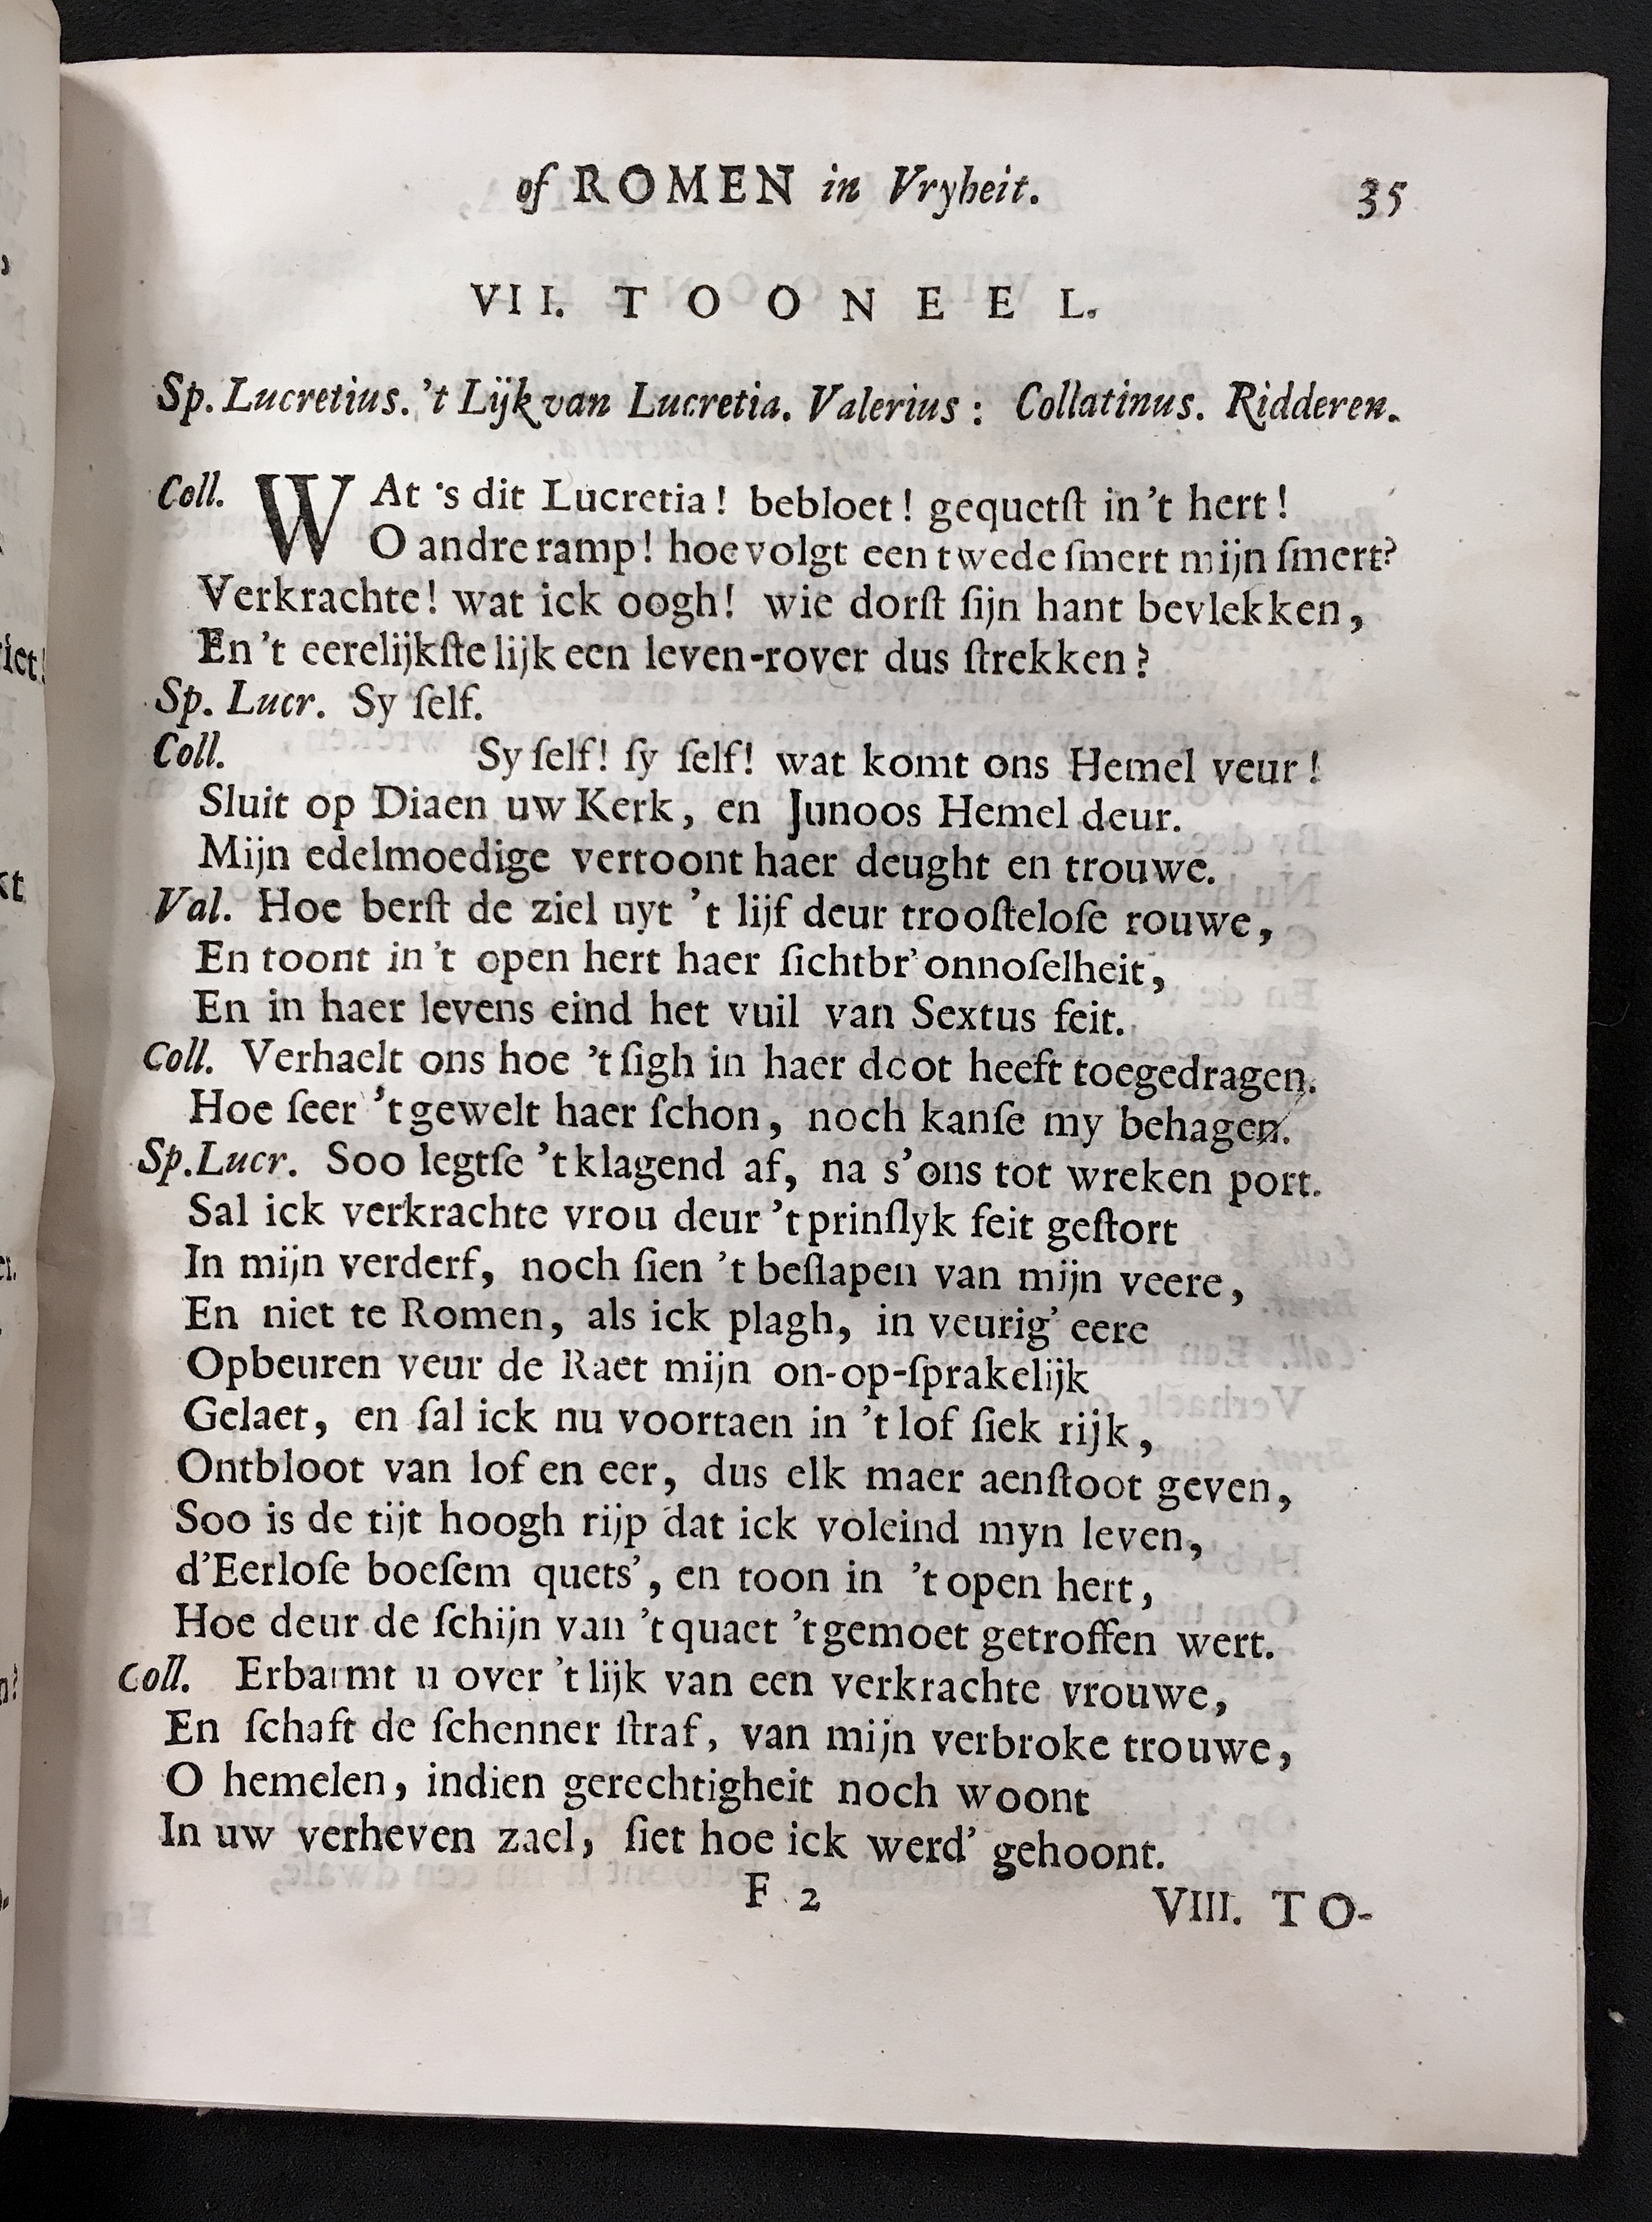 of ROMEN in Vryheit. 35
VII. TOONEEL.
Sp. Lucretius. 't Lijk van Lucretia. Valerius: Collatinus. Ridderen.
Coll. WAt 's dit Lucretia! bebloet! gequetſt in 't hert!
O andre ramp! hoe volgt een twede ſmert mijn ſmert?
Verkrachte! wat ick oogh! wie dorſt ſijn hant bevlekken,
En 't eerelijkſte lijk een leven-rover dus ſtrekken?
Sp. Lucr. Sy ſelf.
Coll. Sy ſelf! ſy ſelf! wat komt ons Hemel veur!
Sluit op Diaen uw Kerk, en Junoos Hemel deur.
Mijn edelmoedige vertoont haer deught en trouwe.
Val. Hoe berſt de ziel uyt 't lijf deur trooſteloſe rouwe,
En toont in 't open hert haer ſichtbr' onnoſelheit,
En in haer levens eind het vuil van Sextus feit.
Coll. Verhaelt ons hoe 't ſigh in haer doot heeft toegedragen.
Hoe ſeer 't gewelt haer ſchon, noch kanſe my behagen.
Sp. Lucr. Soo legtſe 't klagend af, na s'ons tot wreken port.
Sal ick verkrachte vrou deur 't prinſlyk feit geſtort
In mijn verderf, noch ſien 't beſlapen van mijn veere,
En niet te Romen, als ick plagh, in veurig' eere
Opbeuren veur de Raet mijn on-op-ſprakelijk
Gelaet, en ſal ick nu voortaen in 't lof ſiek rijk,
Ontbloot van lof en eer, dus elk maer aenſtoot geven,
Soo is de tijt hoogh rijp dat ick voleind myn leven,
d'Eerloſe boeſem quets', en toon in 't open hert,
Hoe deur de ſchijn van 't quaet 't gemoet getroffen wert.
Coll. Erbarmt u over 't lijk van een verkrachte vrouwe,
En ſchaft de ſchenner ſtraf, van mijn verbroke trouwe,
O hemelen, indien gerechtigheit noch woont
In uw verheven zael, ſiet hoe ick werd' gehoont.
F 2 VIII. TO-